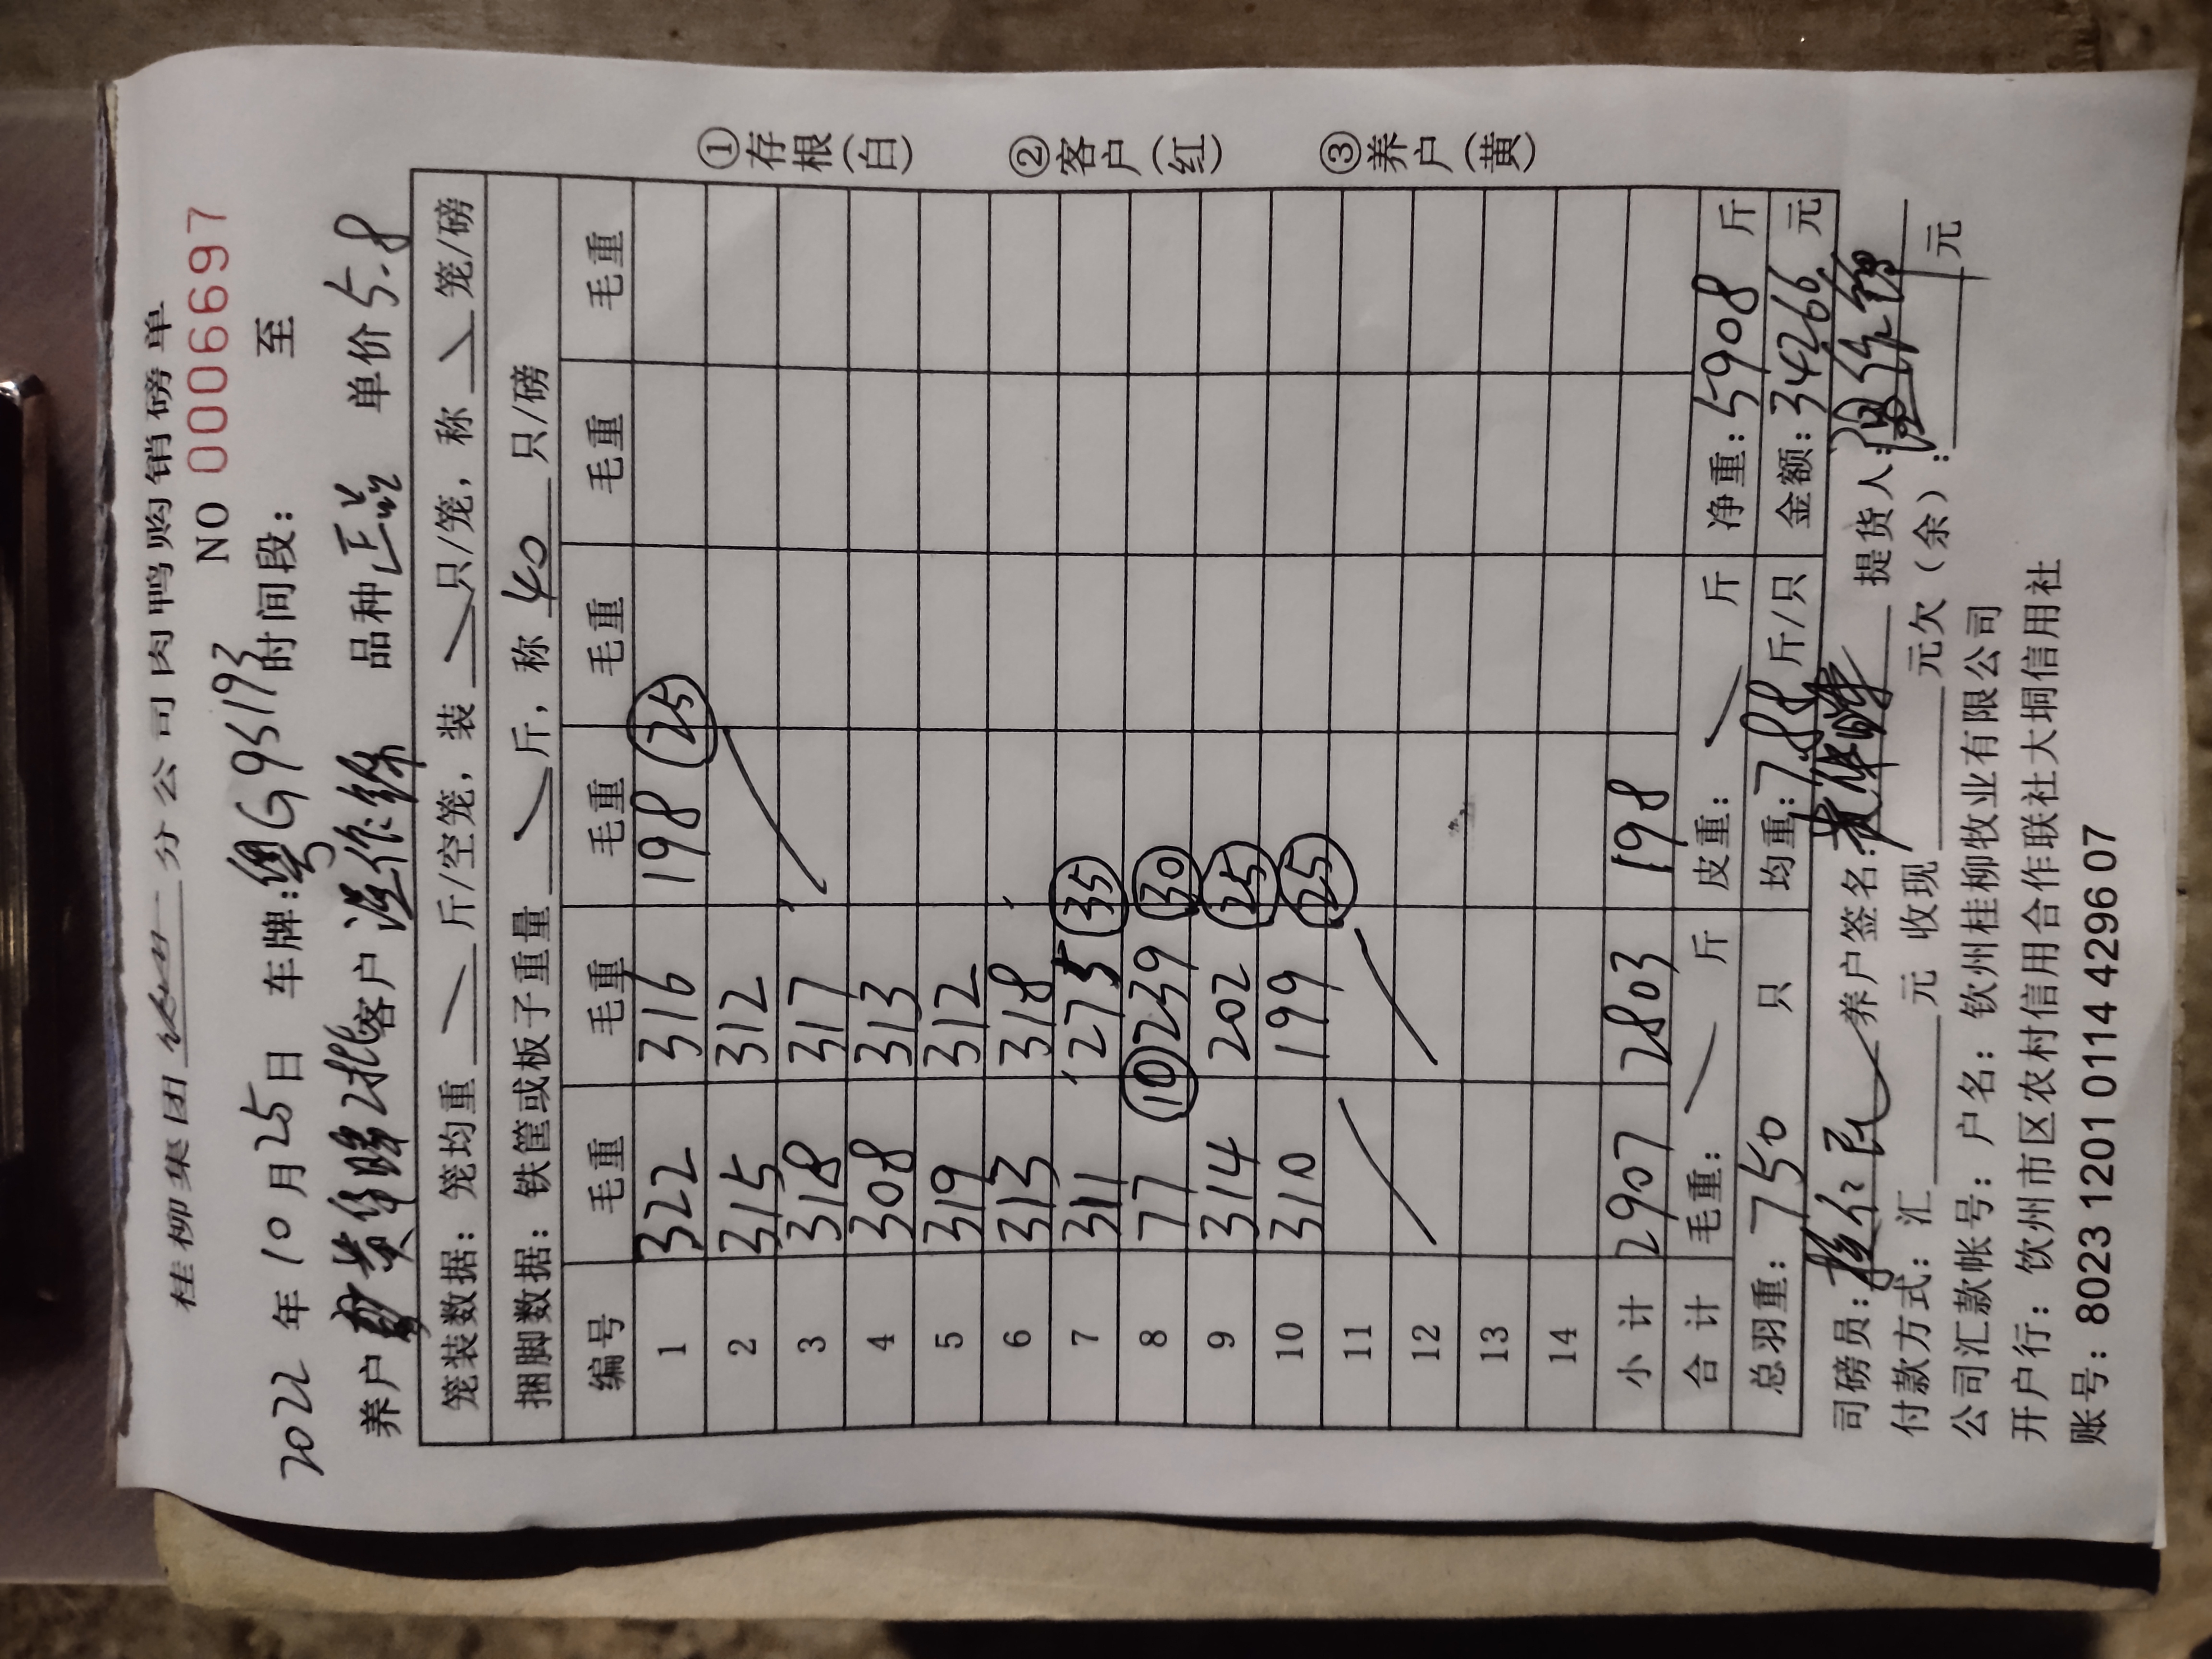 桂柳集团 分公司肉鸭购销磅单
NO 0006697
2022 年 10 月 25 日 车牌:粤G95193 时间段: 至
养户 黄华 2批 客户 温作 品种 正品 单价 5.8
笼装数据: 笼均重 斤/空笼, 装 只/笼, 称 笼/磅
捆脚数据: 铁筐或板子重量 斤, 称 40 只/磅
编号 毛重 毛重 毛重 毛重 毛重 毛重
1 322 316 198 25
2 315 312
3 318 317
4 308 313
5 319 312
6 313 318
7 311 275 35
8 77 10 239 30
9 314 202 25
10 310 199 25
11
12
13
14
小计 2907 2803 198
合计 毛重: 斤 皮重: 斤 净重: 5908 斤
总羽重: 750 只 均重: 7.88 斤/只 金额: 34266. 元
司磅员: 养户签名: 提货人:
付款方式: 汇 元 收现 元欠(余): 元
公司汇款帐号: 户名: 钦州桂柳牧业有限公司
开户行: 饮州市区农村信用合作联社大垌信用社
账号: 8023 1201 0114 4296 07
①存根(白) ②客户(红) ③养户(黄)